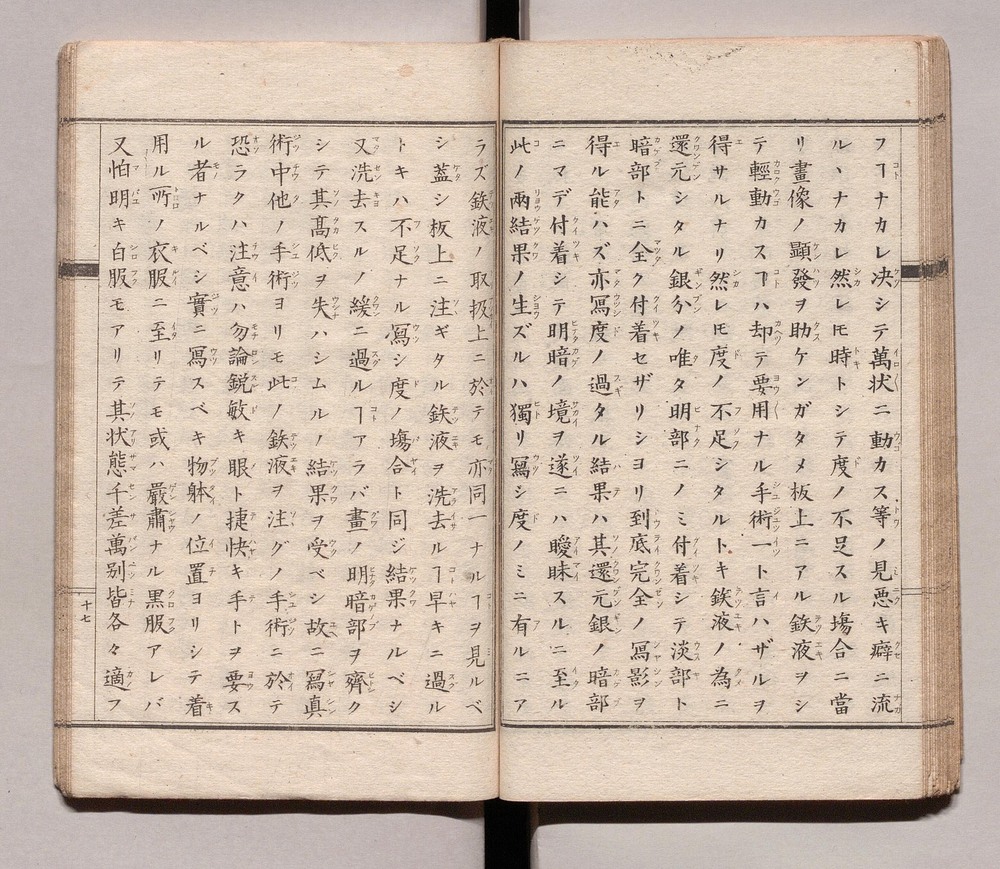 フヿナカレ决シテ萬状ニ動カス等ノ見悪キ癖ニ流
ルヽナカレ然レ𪜈時トシテ度ノ不足スル塲合ニ當
リ畫像ノ顯發ヲ助ケンガタメ板上ニアル鉄液ヲシ
テ輕動カスヿハ却テ要用ナル手術一ト言ハザルヲ
得サルナリ然レ𪜈度ノ不足シタルトキ鉄液ノ為ニ
還元シタル銀分ノ唯タ明部ニノミ付着シテ淡部ト
暗部トニ全ク付着セザリシヨリ到底完全ノ冩影ヲ
得ル能ハズ亦冩度ノ過タル結果ハ其還元銀ノ暗部
ニマデ付着シテ明暗ノ境ヲ遂ニハ曖昧スルニ至ル
此ノ兩結果ノ生ズルハ獨リ冩シ度ノミニ有ルニア
ラズ鉄液ノ取扱上ニ於テモ亦同一ナルヿヲ見ルベ
シ蓋シ板上ニ注ギタル鉄液ヲ洗去ルヿ早キニ過ル
トキハ不足ナル冩シ度ノ塲合ト同ジ結果ナルベシ
又洗去スルノ緩ニ過ルヿアラバ畫ノ明暗部ヲ齊ク
シテ其髙低ヲ失ハシムルノ結果ヲ受ベシ故ニ冩真
術中他ノ手術ヨリモ此ノ鉄液ヲ注グノ手術ニ於テ
恐ラクハ注意ハ勿論鋭敏キ眼ト捷快キ手トヲ要ス
ル者ナルベシ實ニ冩スベキ物躰ノ位置ヨリシテ着
用ル所ノ衣服ニ至リテモ或ハ嚴肅ナル黒服アレバ
又怕明キ白服モアリテ其状態千差萬别皆各々適フ
十七